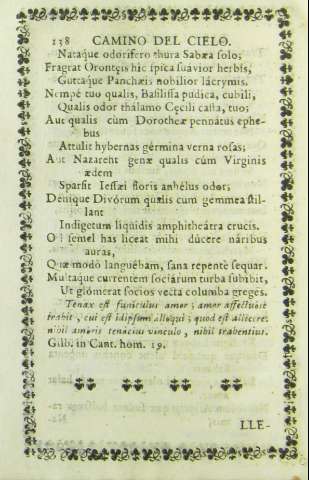 138 CAMINO DEL CIELO.
Nataque odorifero thura Sabæa solo;
Fragrat Orontęis hic spica suavior herbis,
Guttaque Panchæis nobilior lácrymis.
Nempè tuo qualis, Basilissa pudica, cubili,
Qualis odor thálamo Cęcili casta, tuo;
Aut qualis cùm Dorotheæ pennatus ephe-
bus
Attulit hybernas gérmina verna rosas;
Aut Nazareht genæ qualis cúm Virginis
ædem
Sparsit Iessæi floris anhélus odor;
Dénique Divórum qualis cum gemmea stil-
lant
Indigetum liquidis amphitheátra crucis.
O! semel has liceat mihi dúcere náribus
auras,
Quæ modò languébam, sana repentè sequar.
Multaque currentem sociárum turba subibit,
Ut glómerat socios vecta columba greges.
Tenax est funiculus amor; amor affectuosè
trabit, cui est idipsum alloqui; quod est allicere:
nibil amoris tenacius vinculo, nibil trabentius.
Gilb. in Cant. hom. 19.
LLE-